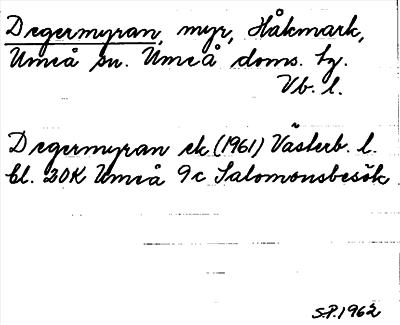 Degermyran, myr, Håkmark,
Umeå sn. Umeå doms. tg.
Vb. l.
Degermyran ek (1961) Västerb. l.
bl. 20K Umeå 9c Salomonsbesök
S.P. 1962